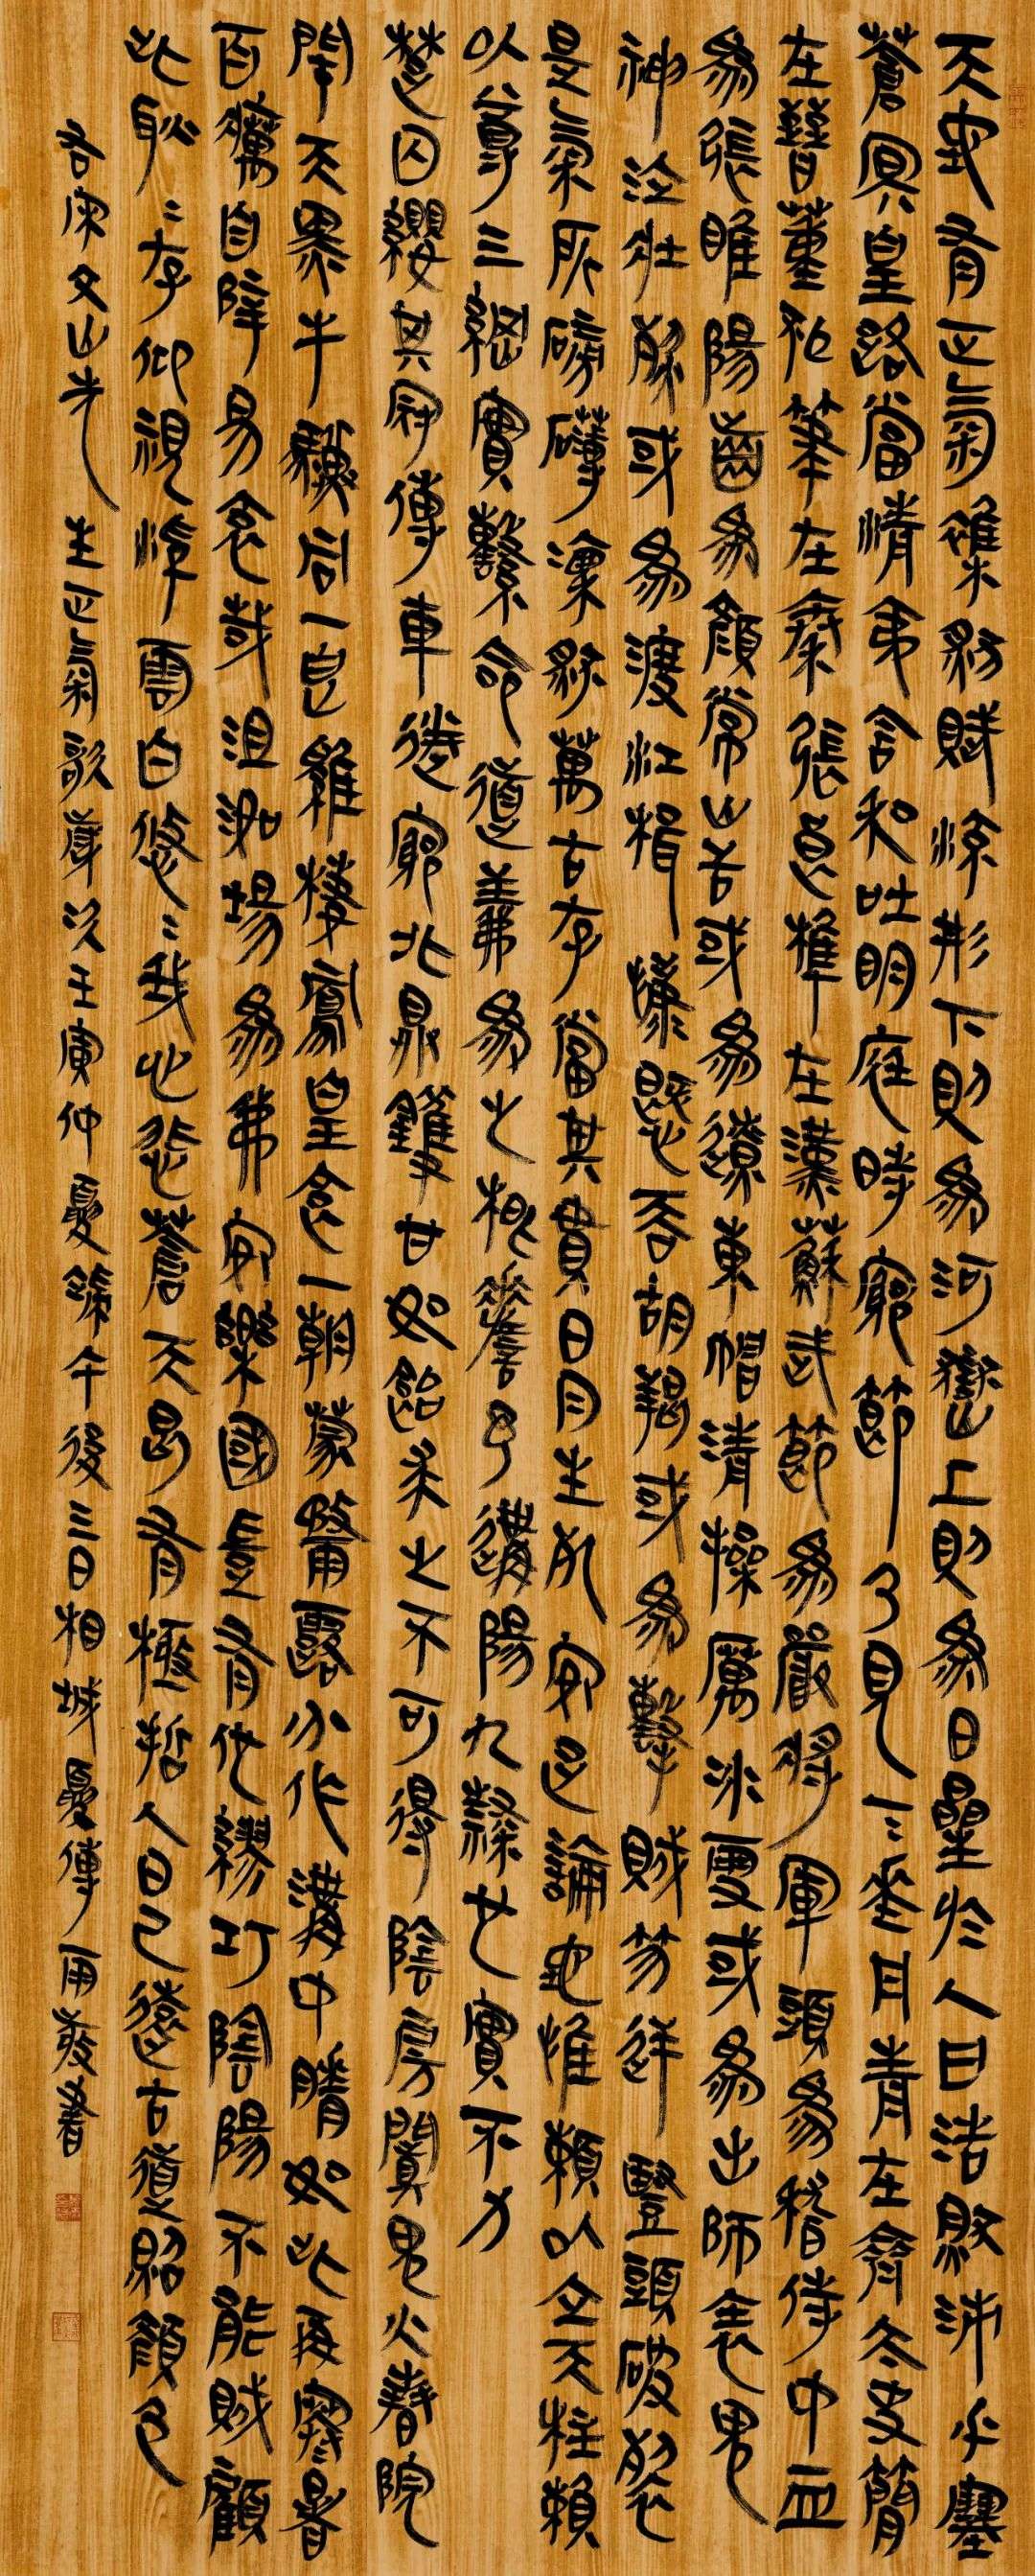 天地有正氣雜然賦流形下則爲河嶽上則爲日星於人曰浩然沛乎塞
蒼冥皇路當清夷含和吐明庭時窮節乃見一〻垂丹青在齊太史簡
在晉董狐筆在秦張良椎在漢蘇武節爲嚴將軍頭爲嵇侍中血
爲張睢陽齒爲顏常山舌或爲遼東帽清操厲冰雪或爲出師表鬼
神泣壯烈或爲渡江楫慷慨吞胡羯或爲擊賊笏逆豎頭破裂
是氣所磅礴凜烈萬古存當其貫日月生死安足論地維賴以立天柱賴
以尊三綱實繫命道義爲之根嗟予遘陽九隸也實不力
楚囚纓其冠傳車送窮北鼎鑊甘如飴求之不可得陰房闃鬼火春院
閟天黑牛驥同一皂雞棲鳳皇食一朝蒙霧露分作溝中瘠如此再寒暑
百癘自辟易哀哉沮洳場爲我安樂國豈有他繆巧陰陽不能賊顧
此耿〻存仰視浮雲白悠〻我心悲蒼天曷有極哲人日已遠古道照顏色
右宋文山先生正氣歌歲次壬寅仲夏端午後三日相城夏傳雨敬書